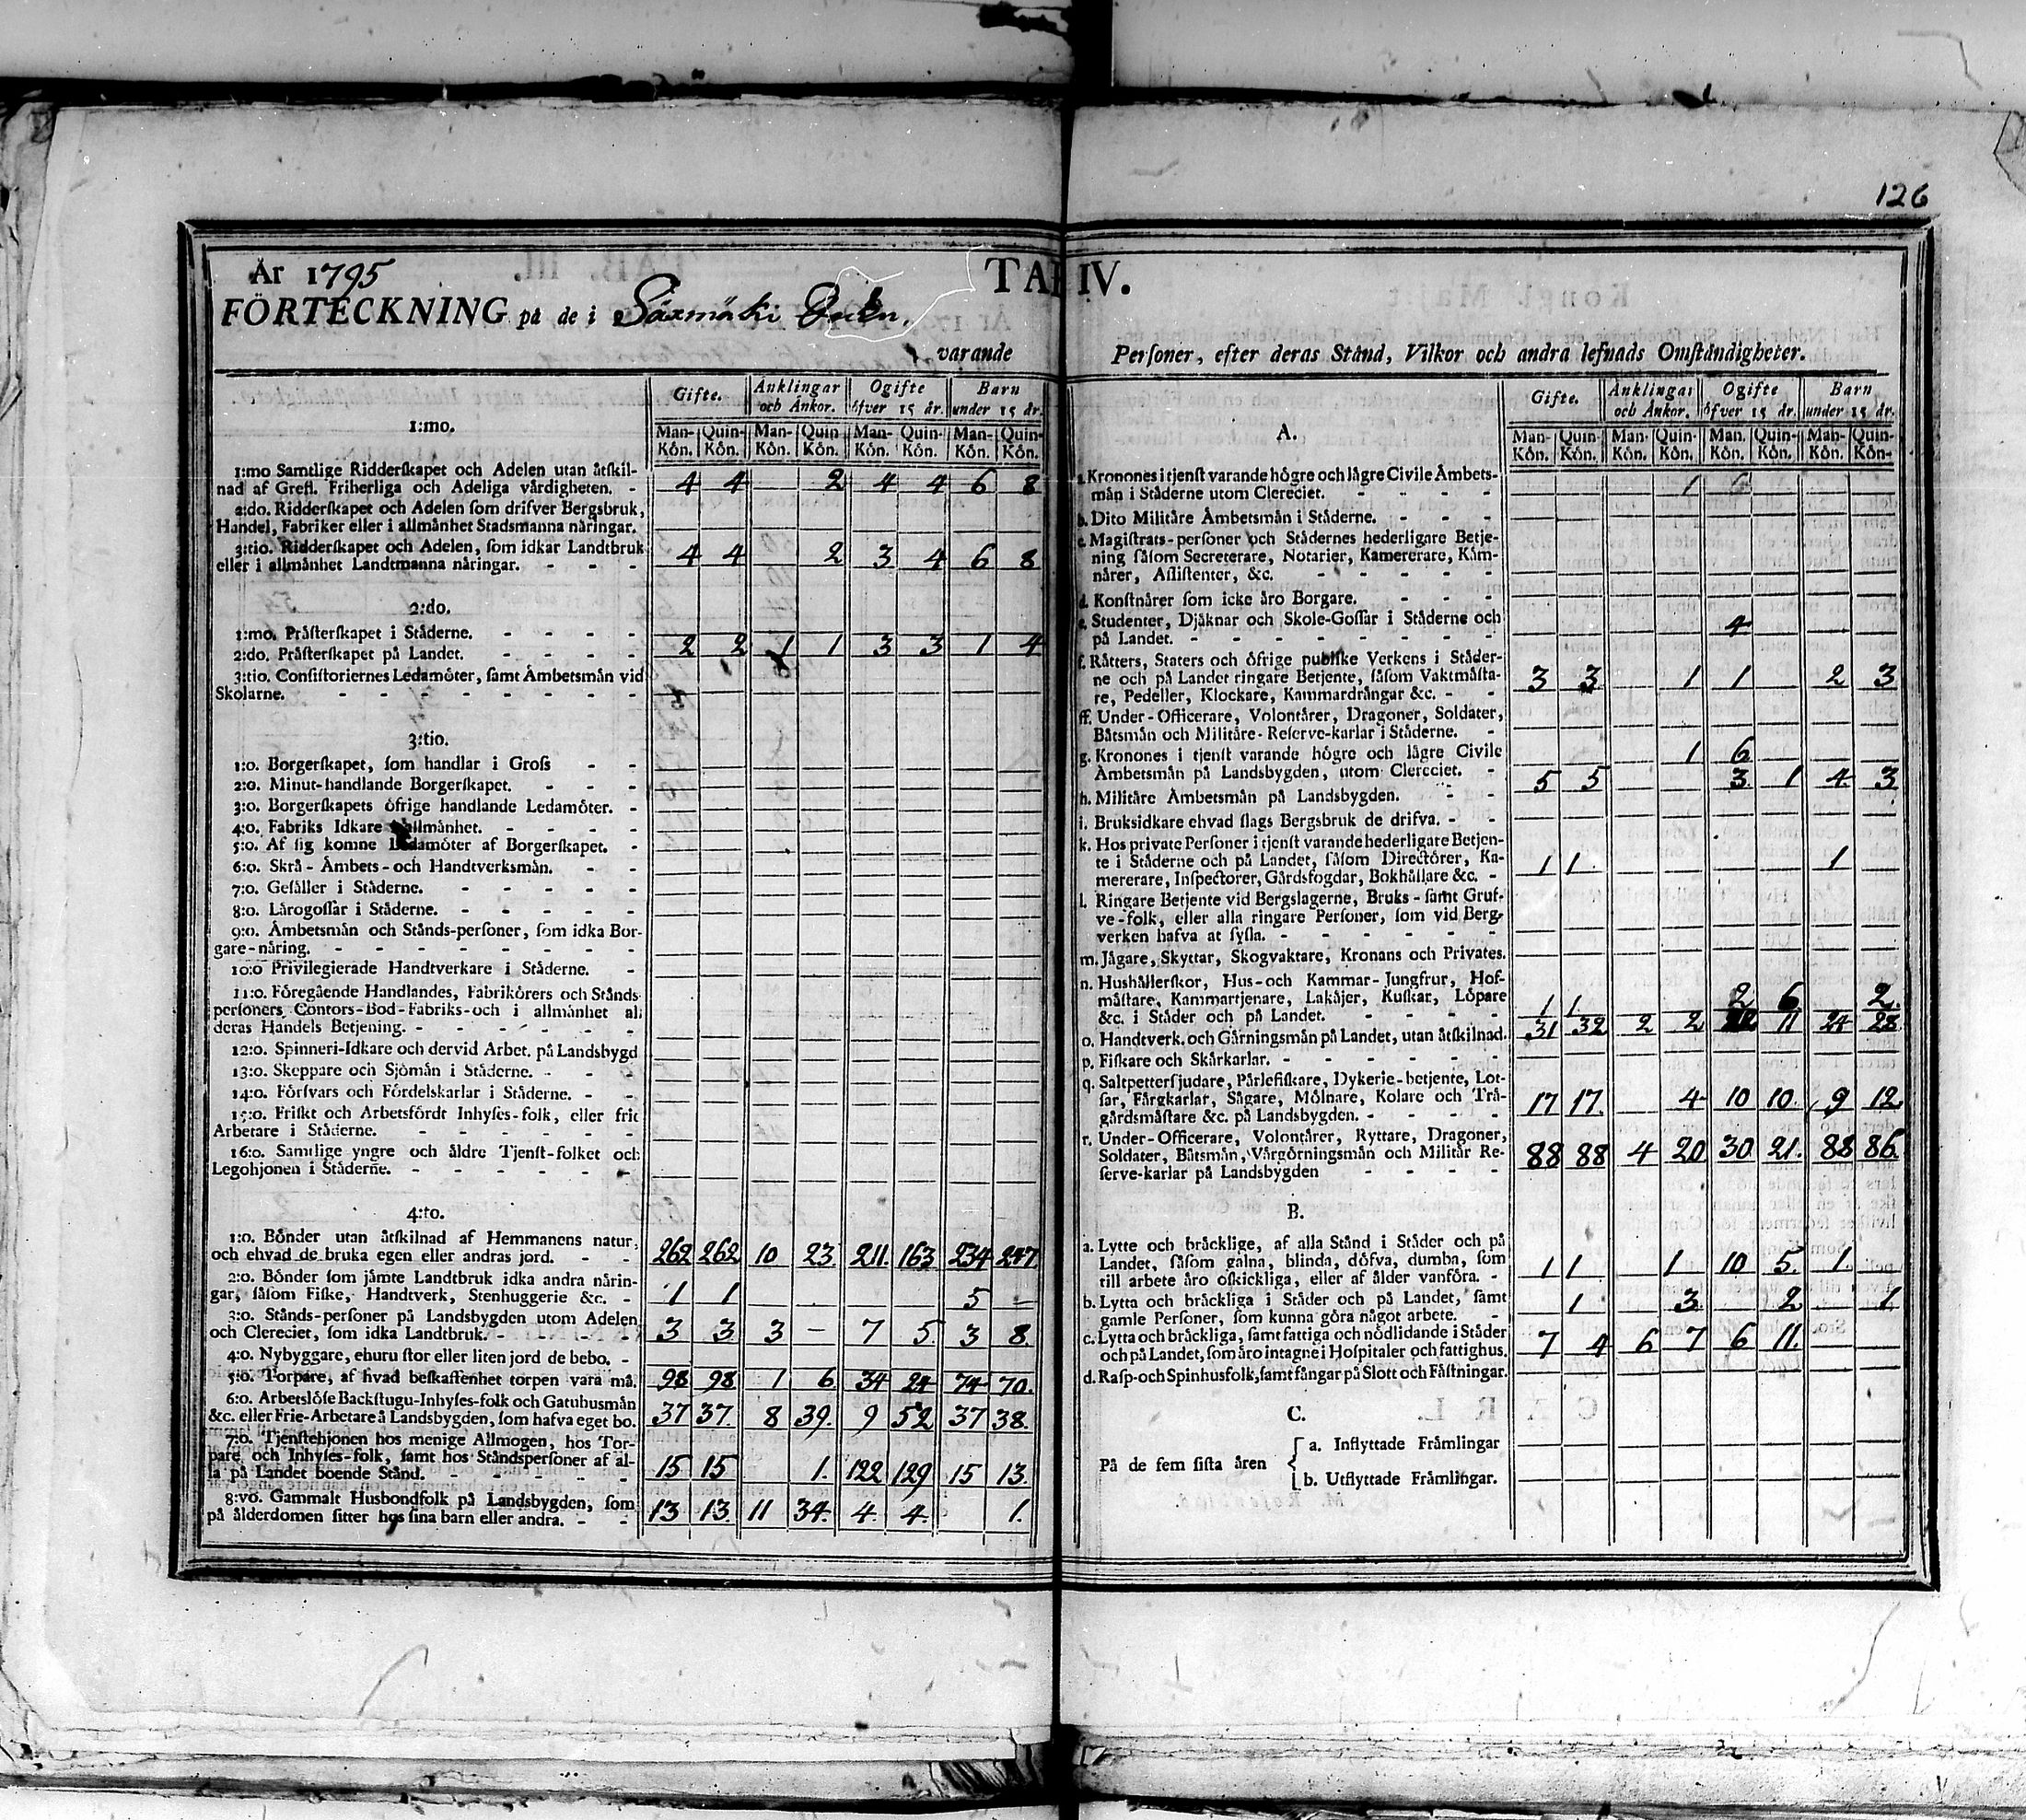 126
År 1795
TAB IV.
FÖRTECKNING på de i Säxmäki
varande Personer, efter deras Stånd, Vilkor och andra lefnads Omständigheter.
Gifte. Änklingar och Änkor. Ogifte öfver 15 år. Barn under 15 år.
Man-Kön. Quin-Kön. Man-Kön. Quin-Kön. Man-Kön. Quin-Kön. Man-Kön. Quin-Kön.
1:mo.
1:mo Samtlige Ridderskapet och Adelen utan åtskil-
nad af Grefl. Friherliga och Adeliga värdigheten. - 4 4 2 4 4 6 8
2:do. Ridderskapet och Adelen som drifver Bergsbruk,
Handel, Fabriker eller i allmänhet Stadsmanna näringar.
3:tio. Ridderskapet och Adelen, som idkar Landtbruk
eller i allmänhet Landtmanna näringar. - - - 4 4 2 3 4 6 8
2:do.
1:mo. Prästerskapet i Städerne. - - - -
2:do. Prästerskapet på Landet. - - - - 2 2 1 1 3 3 1 4
3:tio. Consistoriernes Ledamöter, samt Ämbetsmän vid
Skolarne. - - - - - - - -
3:tio.
1:o. Borgerskapet, som handlar i Gross - -
2:o. Minut-handlande Borgerskapet. - - -
3:o. Borgerskapets öfrige handlande Ledamöter. -
4:o. Fabriks Idkare allmänhet. - - - -
5:o. Af sig komne Ledamöter af Borgerskapet. -
6:o. Skrå-Ämbets-och Handtverksmän. - -
7:o. Gesäller i Städerne. - - - - -
8:o. Lärogossar i Städerne. - - - - -
9:o. Ämbetsmän och Stånds-personer, som idka Bor-
gare-näring. - - - - - - -
10:o Privilegierade Handtverkare i Städerne. -
11:o. Föregående Handlandes, Fabrikörers och Stånds
personers Contors-Bod-Fabriks-och i allmänhet all
deras Handels Betjening. - - - - - -
12:o. Spinneri-Idkare och dervid Arbet. på Landsbygd
13:o. Skeppare och Sjömän i Städerne. - - -
14:o. Försvars och Fördelskarlar i Städerne. - -
15:o. Friskt och Arbetsfördt Inhyses-folk, eller frie
Arbetare i Städerne. - - - - - -
16:o. Samtlige yngre och äldre Tjenst-folket och
Legohjonen i Städerne. - - - - - -
4:to.
1:o. Bönder utan åtskilnad af Hemmanens natur,
och ehvad de bruka egen eller andras jord. - - 262 262 10 23 211 163 234 247
2:o. Bönder som jämte Landtbruk idka andra närin-
gar, såsom Fiske, Handtverk, Stenhuggerie &c. - 1 1 5 -
3:o. Stånds-personer på Landsbygden utom Adelen
och Cleresiet, som idka Landtbruk. - - - - 3 3 3 - 7 5 3 8
4:o. Nybyggare, ehuru stor eller liten jord de bebo. -
5:o. Torpare, af hvad beskaffenhet torpen vara må. 98 98 1 6 34 24 74 70.
6:o. Arbetslöse Backstugu-Inhyses-folk och Gatuhusmän
&c. eller Frie-Arbetare å Landsbygden, som hafva eget bo. 37 37. 8 39. 9 52 37 38.
7:o. Tjenstehjonen hos menige Allmogen, hos Tor-
pare och Inhyses-folk, samt hos Ståndspersoner af al-
la på Landet boende Stånd. - - - - - 15 15 1. 122 129 15 13.
8:vo. Gammalt Husbondfolk på Landsbygden, som
på ålderdomen sitter hos sina barn eller andra. - - 13 13 11 34. 4. 4. 1.
Gifte. Änklingar och Änkor. Ogifte öfver 15 år. Barn under 15 år.
Man-Kön. Quin-Kön. Man-Kön. Quin-Kön. Man. Kön. Quin-Kön. Man-Kön. Quin-Kön.
A.
a. Kronones i tjenst varande högre och lägre Civile Ämbets-
män i Städerne utom Cleresiet. - - - - 1 6
b. Dito Militäre Ämbetsmän i Städerne. - - -
c. Magistrats-personer och Städernes hederligare Betje-
ning såsom Secreterare, Notarier, Kamererare, Käm-
närer, Assistenter, &c. - - - - -
d. Konstnärer som icke äro Borgare. - - - -
e. Studenter, Djäknar och Skole-Gossar i Städerne och
på Landet. - - - - - - - - 4
f. Rätters, Staters och öfrige publike Verkens i Städer-
ne och på Landet ringare Betjente, såsom Vaktmästa-
re, Pedeller, Klockare, Kammardrängar &c. - - 3 3 1 1 2 3
ff. Under-Officerare, Volontärer, Dragoner, Soldater,
Båtsmän och Militäre-Reserve-karlar i Städerne. -
g. Kronones i tjenst varande högre och lägre Civile
Ämbetsmän på Landsbygden, utom Cleresiet. - 1 6
h. Militäre Ämbetsmän på Landsbygden. - - 5 5 3 1 4 3
i. Bruksidkare ehvad slags Bergsbruk de drifva. - -
k. Hos private Personer i tjenst varande hederligare Betjen-
te i Städerne och på Landet, såsom Directörer, Ka-
mererare, Inspectorer, Gårdsfogdar, Bokhållare &c. - 1 1 1
l. Ringare Betjente vid Bergslagerne, Bruks-samt Gruf-
ve-folk, eller alla ringare Personer, som vid Berg-
verken hafva at syssla. - - - - - -
m. Jägare, Skyttar, Skogvaktare, Kronans och Privates.
n. Hushållerskor, Hus-och Kammar-Jungfrur, Hof-
mästare, Kammartjenare, Lakäjer, Kuskar, Löpare
&c. i Städer och på Landet. - - - - 1 1 2 6 2.
o. Handtverk. och Gärningsmän på Landet, utan åtskilnad. 31 32 2 2 11 24 28
p. Fiskare och Skärkarlar. - - - - - -
q. Saltpettersjudare, Pärlefiskare, Dykerie-betjente, Lot-
sar, Färgkarlar, Sågare, Mölnare, Kolare och Trä-
gårdsmästare &c. på Landsbygden. - - - - 17 17. 4 10 10. 9 12
r. Under-Officerare, Volontärer, Ryttare, Dragoner,
Soldater, Båtsmän, Värgörningsmän och Militär Re-
serve-karlar på Landsbygden - - - - 88 88 4 20 30 21. 88 86.
B.
a. Lytte och bräcklige, af alla Stånd i Städer och på
Landet, såsom galna, blinda, döfva, dumba, som
till arbete äro oskickliga, eller af ålder vanföra. - 1 1 1 10 5. 1.
b. Lytta och bräckliga i Städer och på Landet, samt
gamle Personer, som kunna göra något arbete. - 1 3 2 1
c. Lytta och bräckliga, samt fattiga och nödlidande i Städer
och på Landet, som äro intagne i Hospitaler och fattighus. 7 4 6 7 6 11.
d. Rasp-och Spinhusfolk, samt fångar på Slott och Fästningar.
C.
På de fem sista åren
a. Inflyttade Främlingar
b. Utflyttade Främlingar.